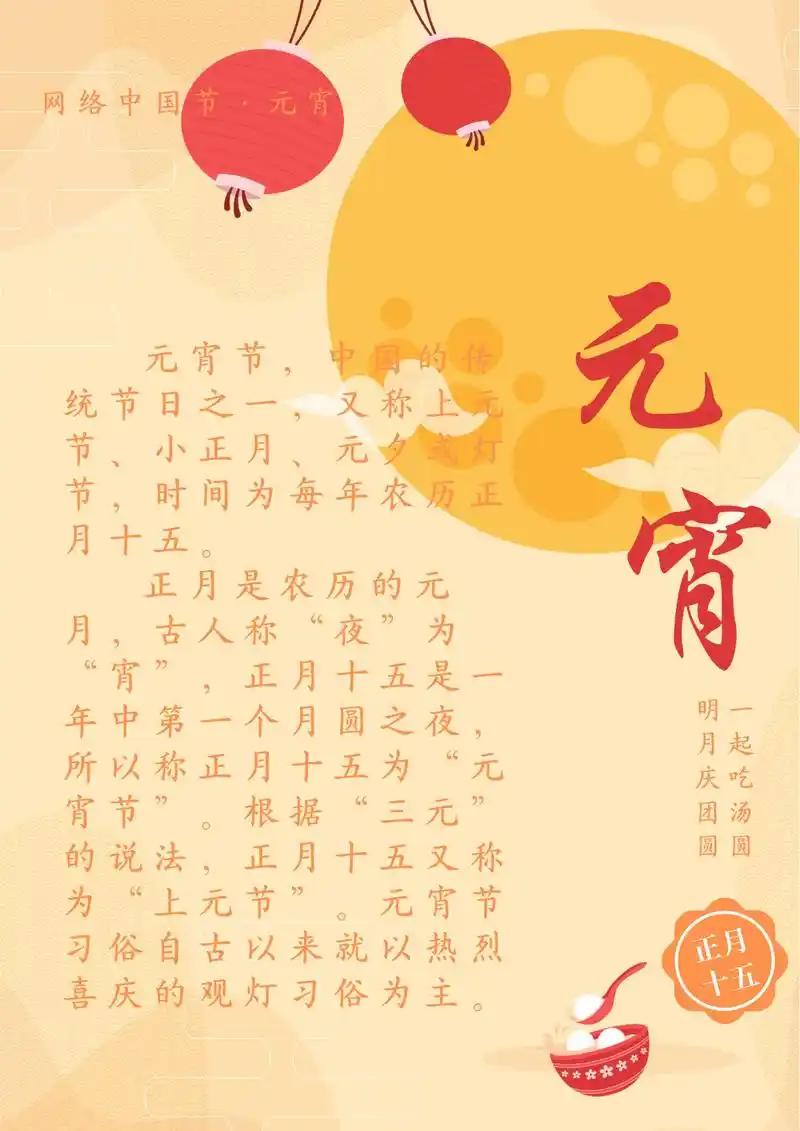 网络中国节·元宵
元宵
元宵节，中国的传
统节日之一，又称上元
节、小正月、元夕或灯
节，时间为每年农历正
月十五。
正月是农历的元
月，古人称“夜”为
“宵”，正月十五是一
年中第一个月圆之夜，
所以称正月十五为“元
宵节”。根据“三元”
的说法，正月十五又称
为“上元节”。元宵节
习俗自古以来就以热烈
喜庆的观灯习俗为主。
一起吃汤圆
明月庆团圆
正月
十五